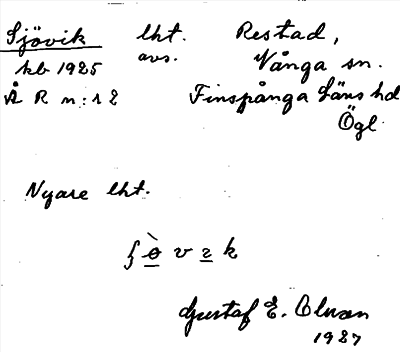 Sjövik lht. Restad,
kb 1925 avs. Vånga sn.
Å R n:s 2 Finspånga Läns hd
Ögl
Nyare lht.
v k
Gustaf E. 
1927